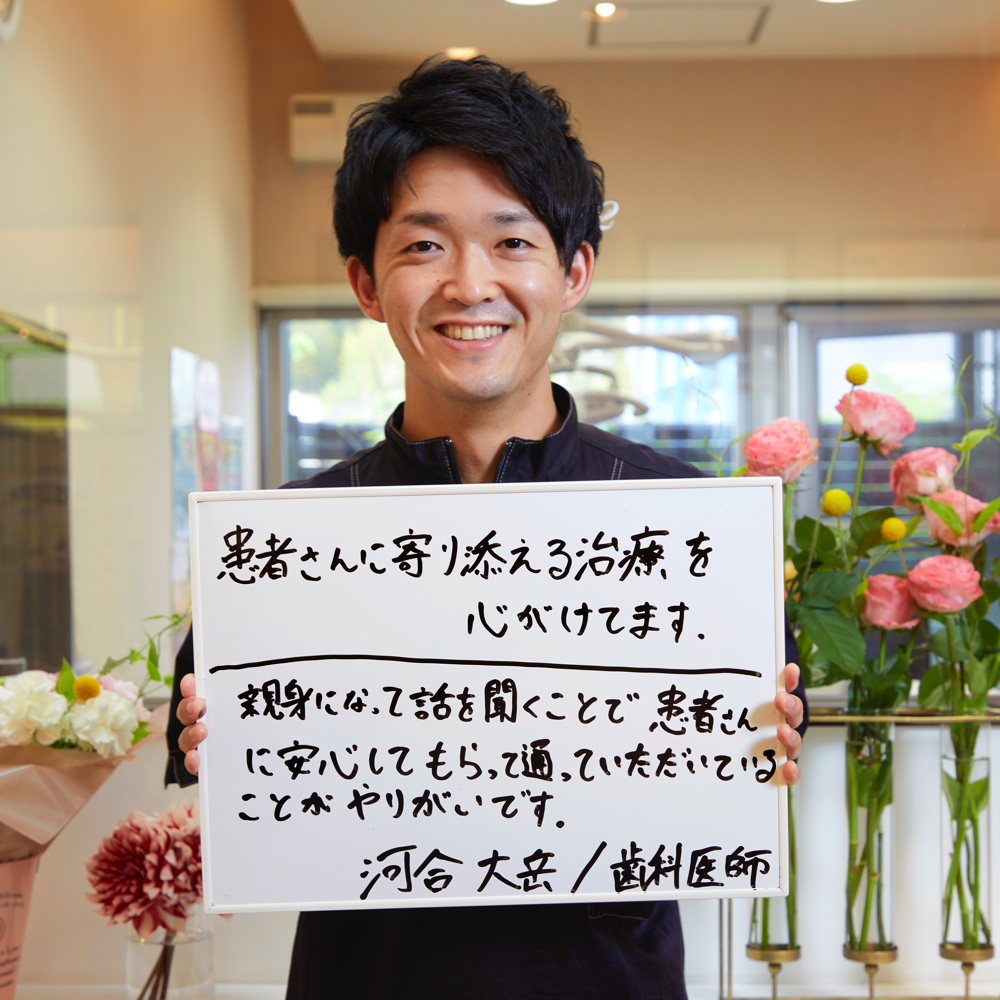 患者さんに寄り添える治療を
心がけてます.
親身になって話を聞くことで患者さん
に安心してもらって通っていただいている
ことがやりがいです.
河合 大岳/歯科医師